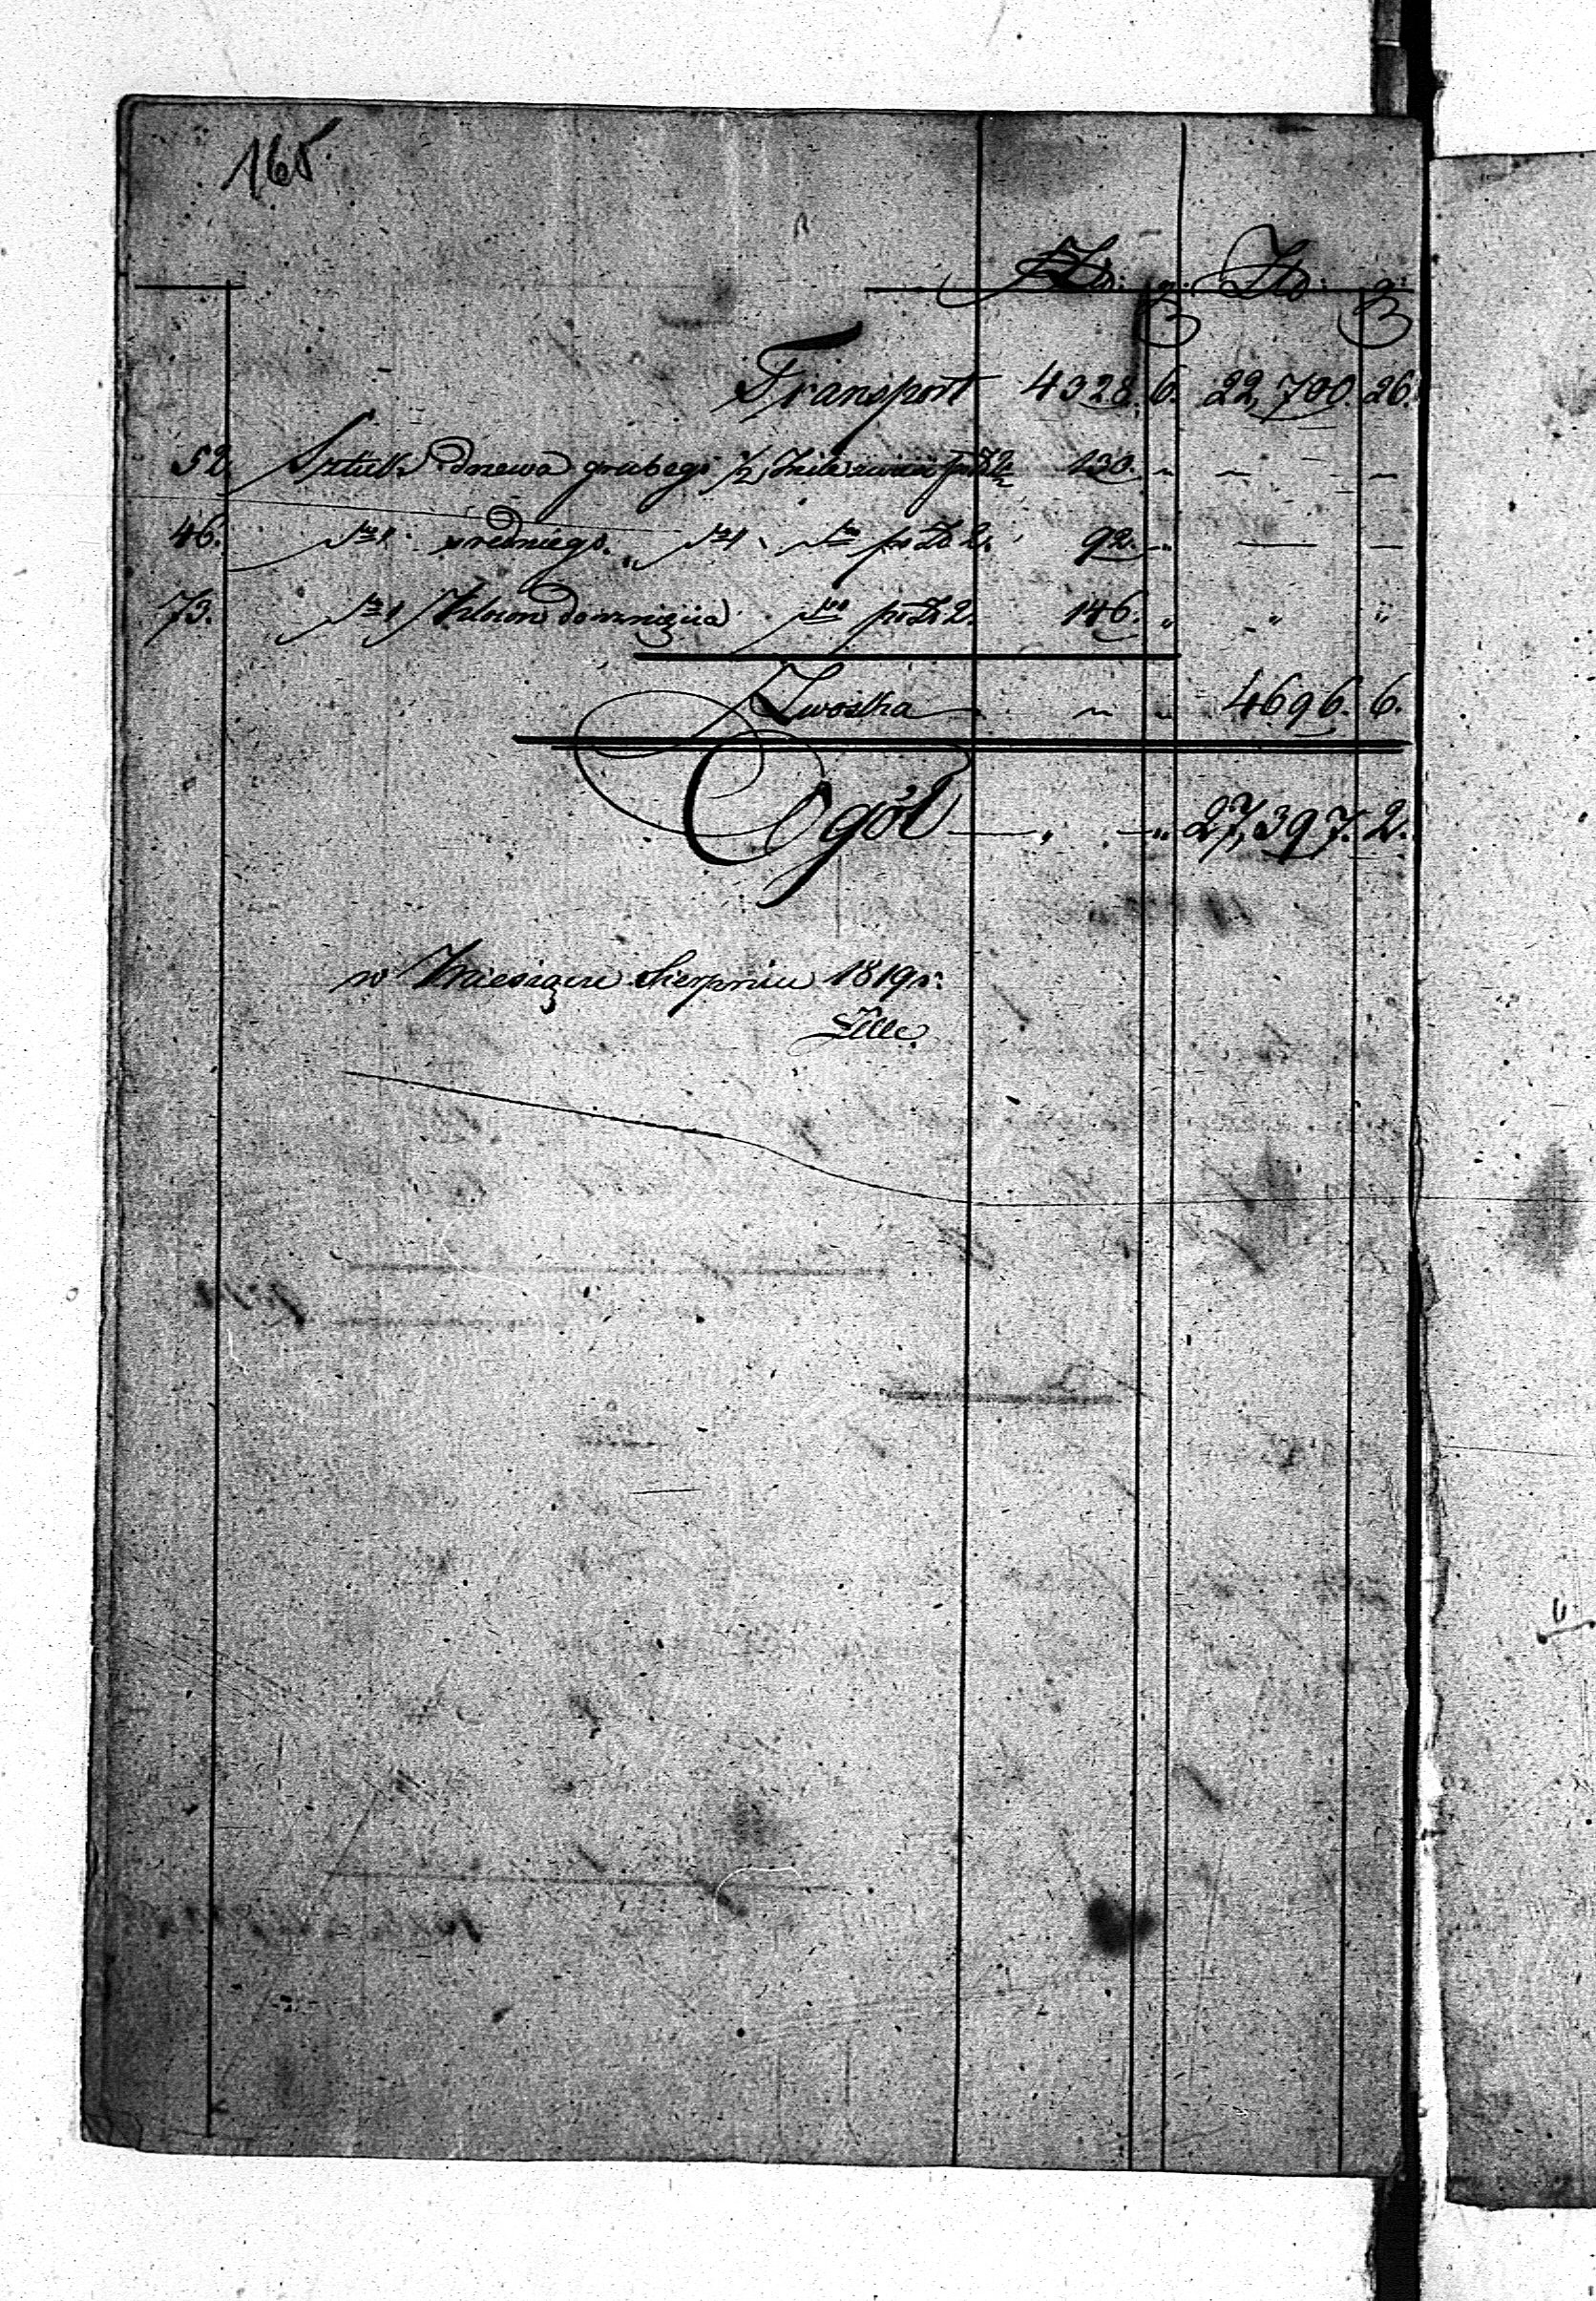 165.
Złb: g: Złb: g:
Transport 4328. 6. 22,700. 26.
52. Sztuk drzewa grubego ½ po Zł 2½ 130. ~ — —
46. średniego. po Zł 2. 92. „ — —
73. po Zł 2. 146. „ „ „
Zwóżka ~ „ 4696. 6.
Ogół — „ — „ 27,397. 2.
w Miesiącu Sierpniu 1819 r: